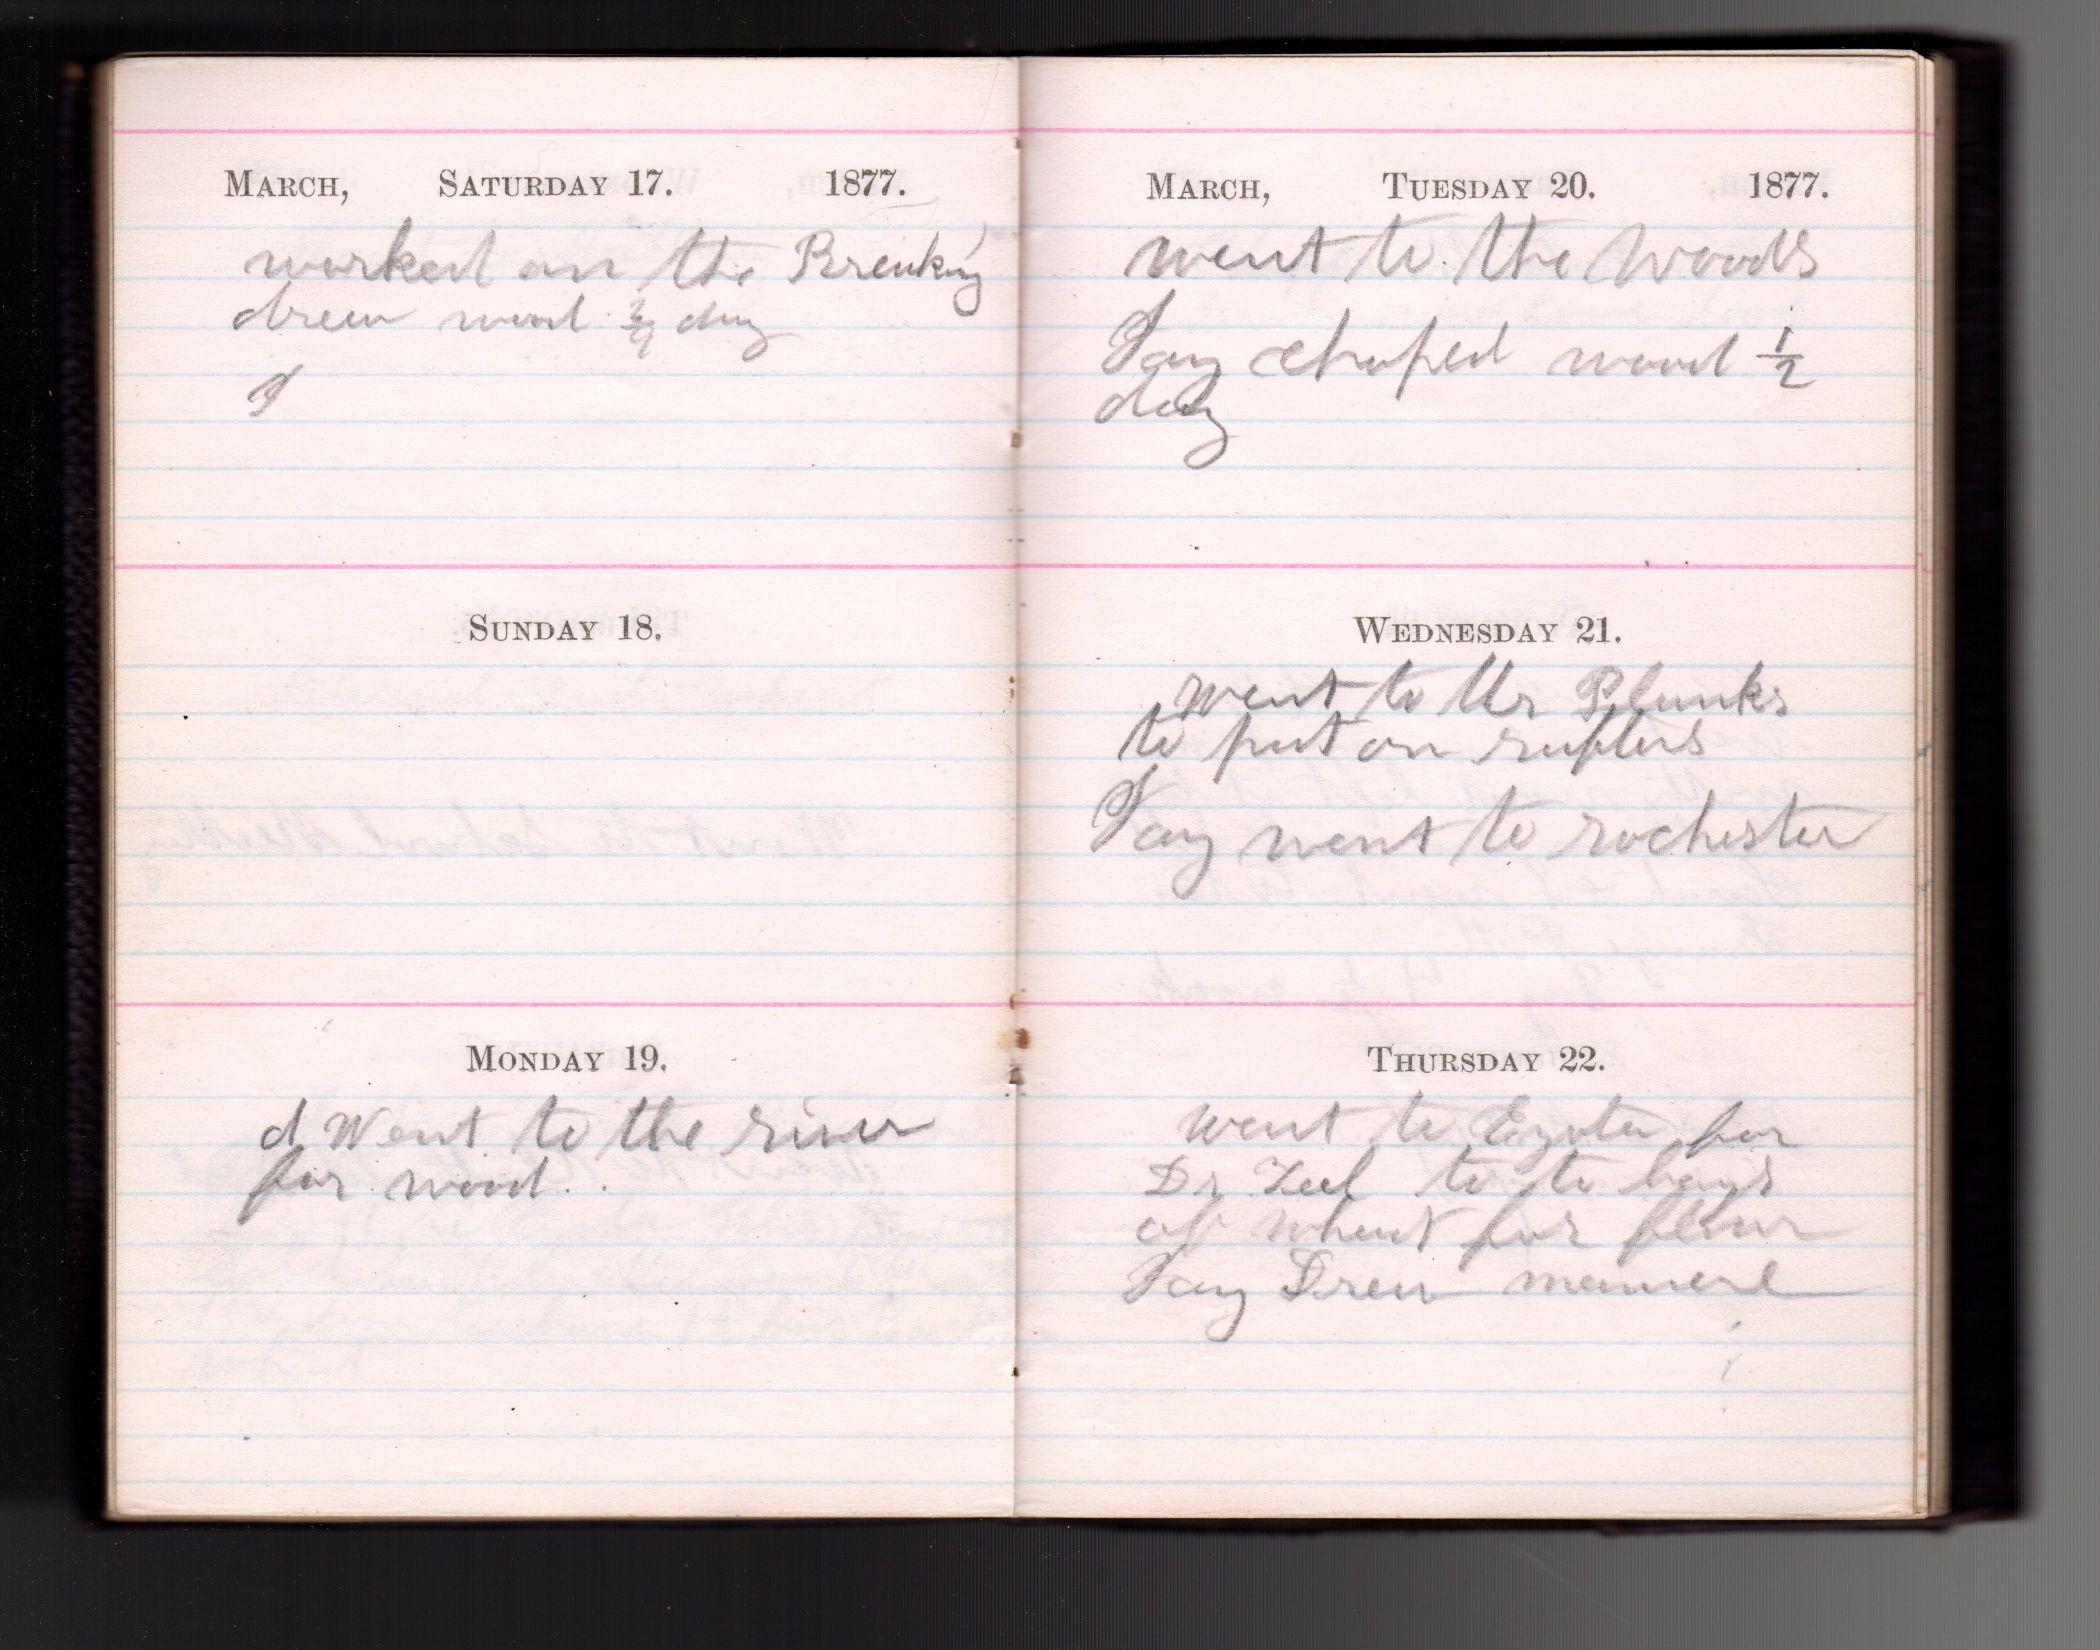 MARCH, SATURDAY 17. 1877.
worked on the Breaking
drew wood day
SUNDAY 18.
MONDAY 19.
d Went to the river
for wood
MARCH, TUESDAY 20. 1877.
went to the Woods
Jay choped wood 1/2
day
WEDNESDAY 21.
went to Mr Plunks
to put on rafters
Jay went to rochester
THURSDAY 22.
went to for
Dr to to bags
of wheat for flour
Jay Drew